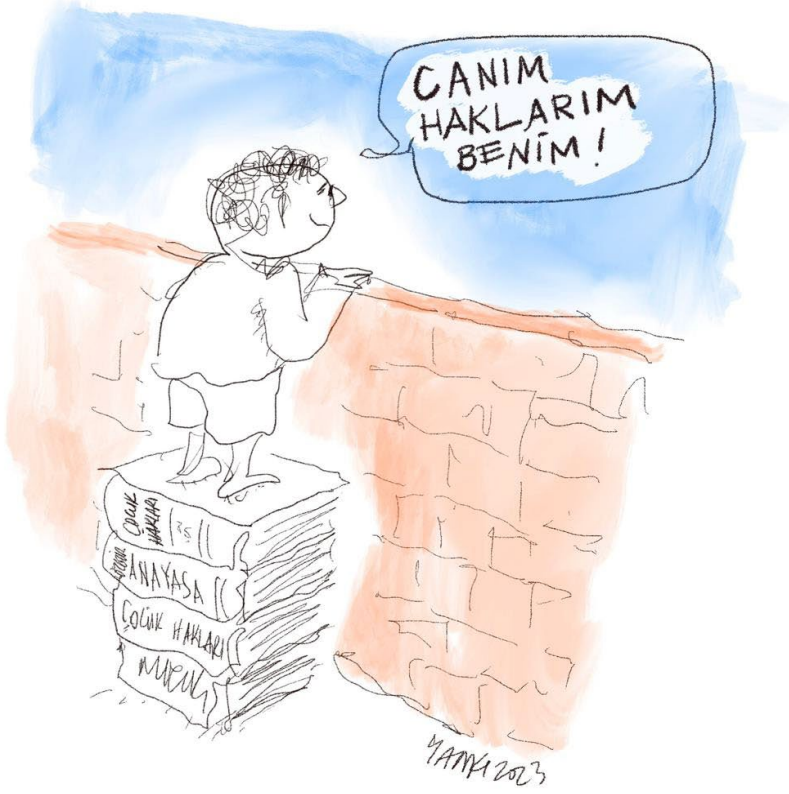 CANIM
HAKLARIM
BENİM!
ÇOCUK
HAKLARI
ANAYASA
ÇOCUK HAKLARI
YANKI 2023